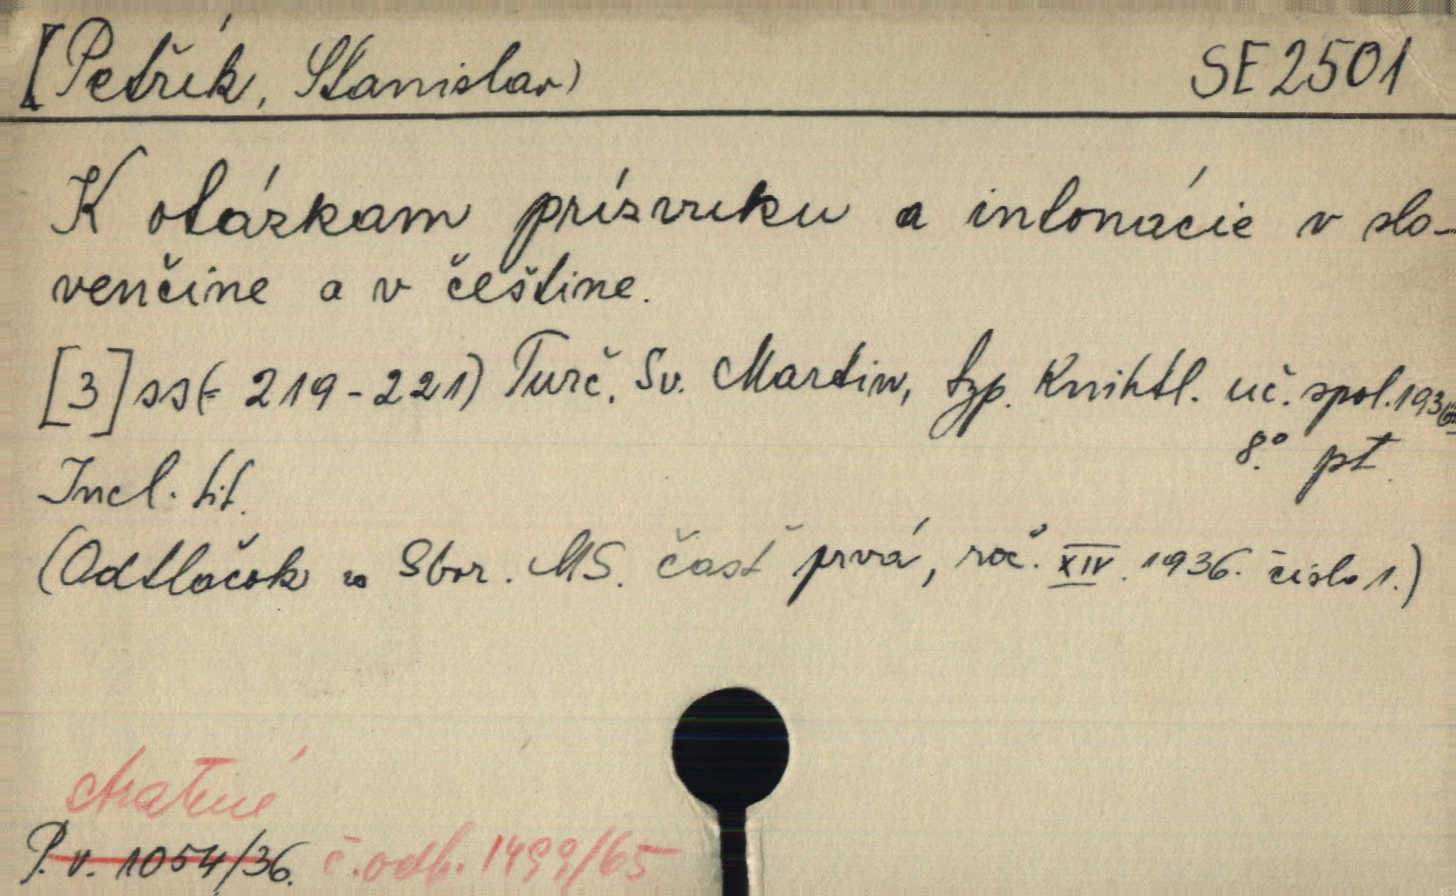 [Petřík, Stanislav)
SE 2501
K otázkam prízvuku a intonácie v slo-
venčine a v češtine.
[3] ss (= 219-221) Turč. Sv. Martin, typ. Knihtl. uč. spol. 1936
8.° pt.
Incl. tit.
(Odtlačok zo Sbor. MS. časť prvá, roč. XIV. 1936. číslo 1.)
stratené
P. v. 1054/36. č. odb. 1499/65